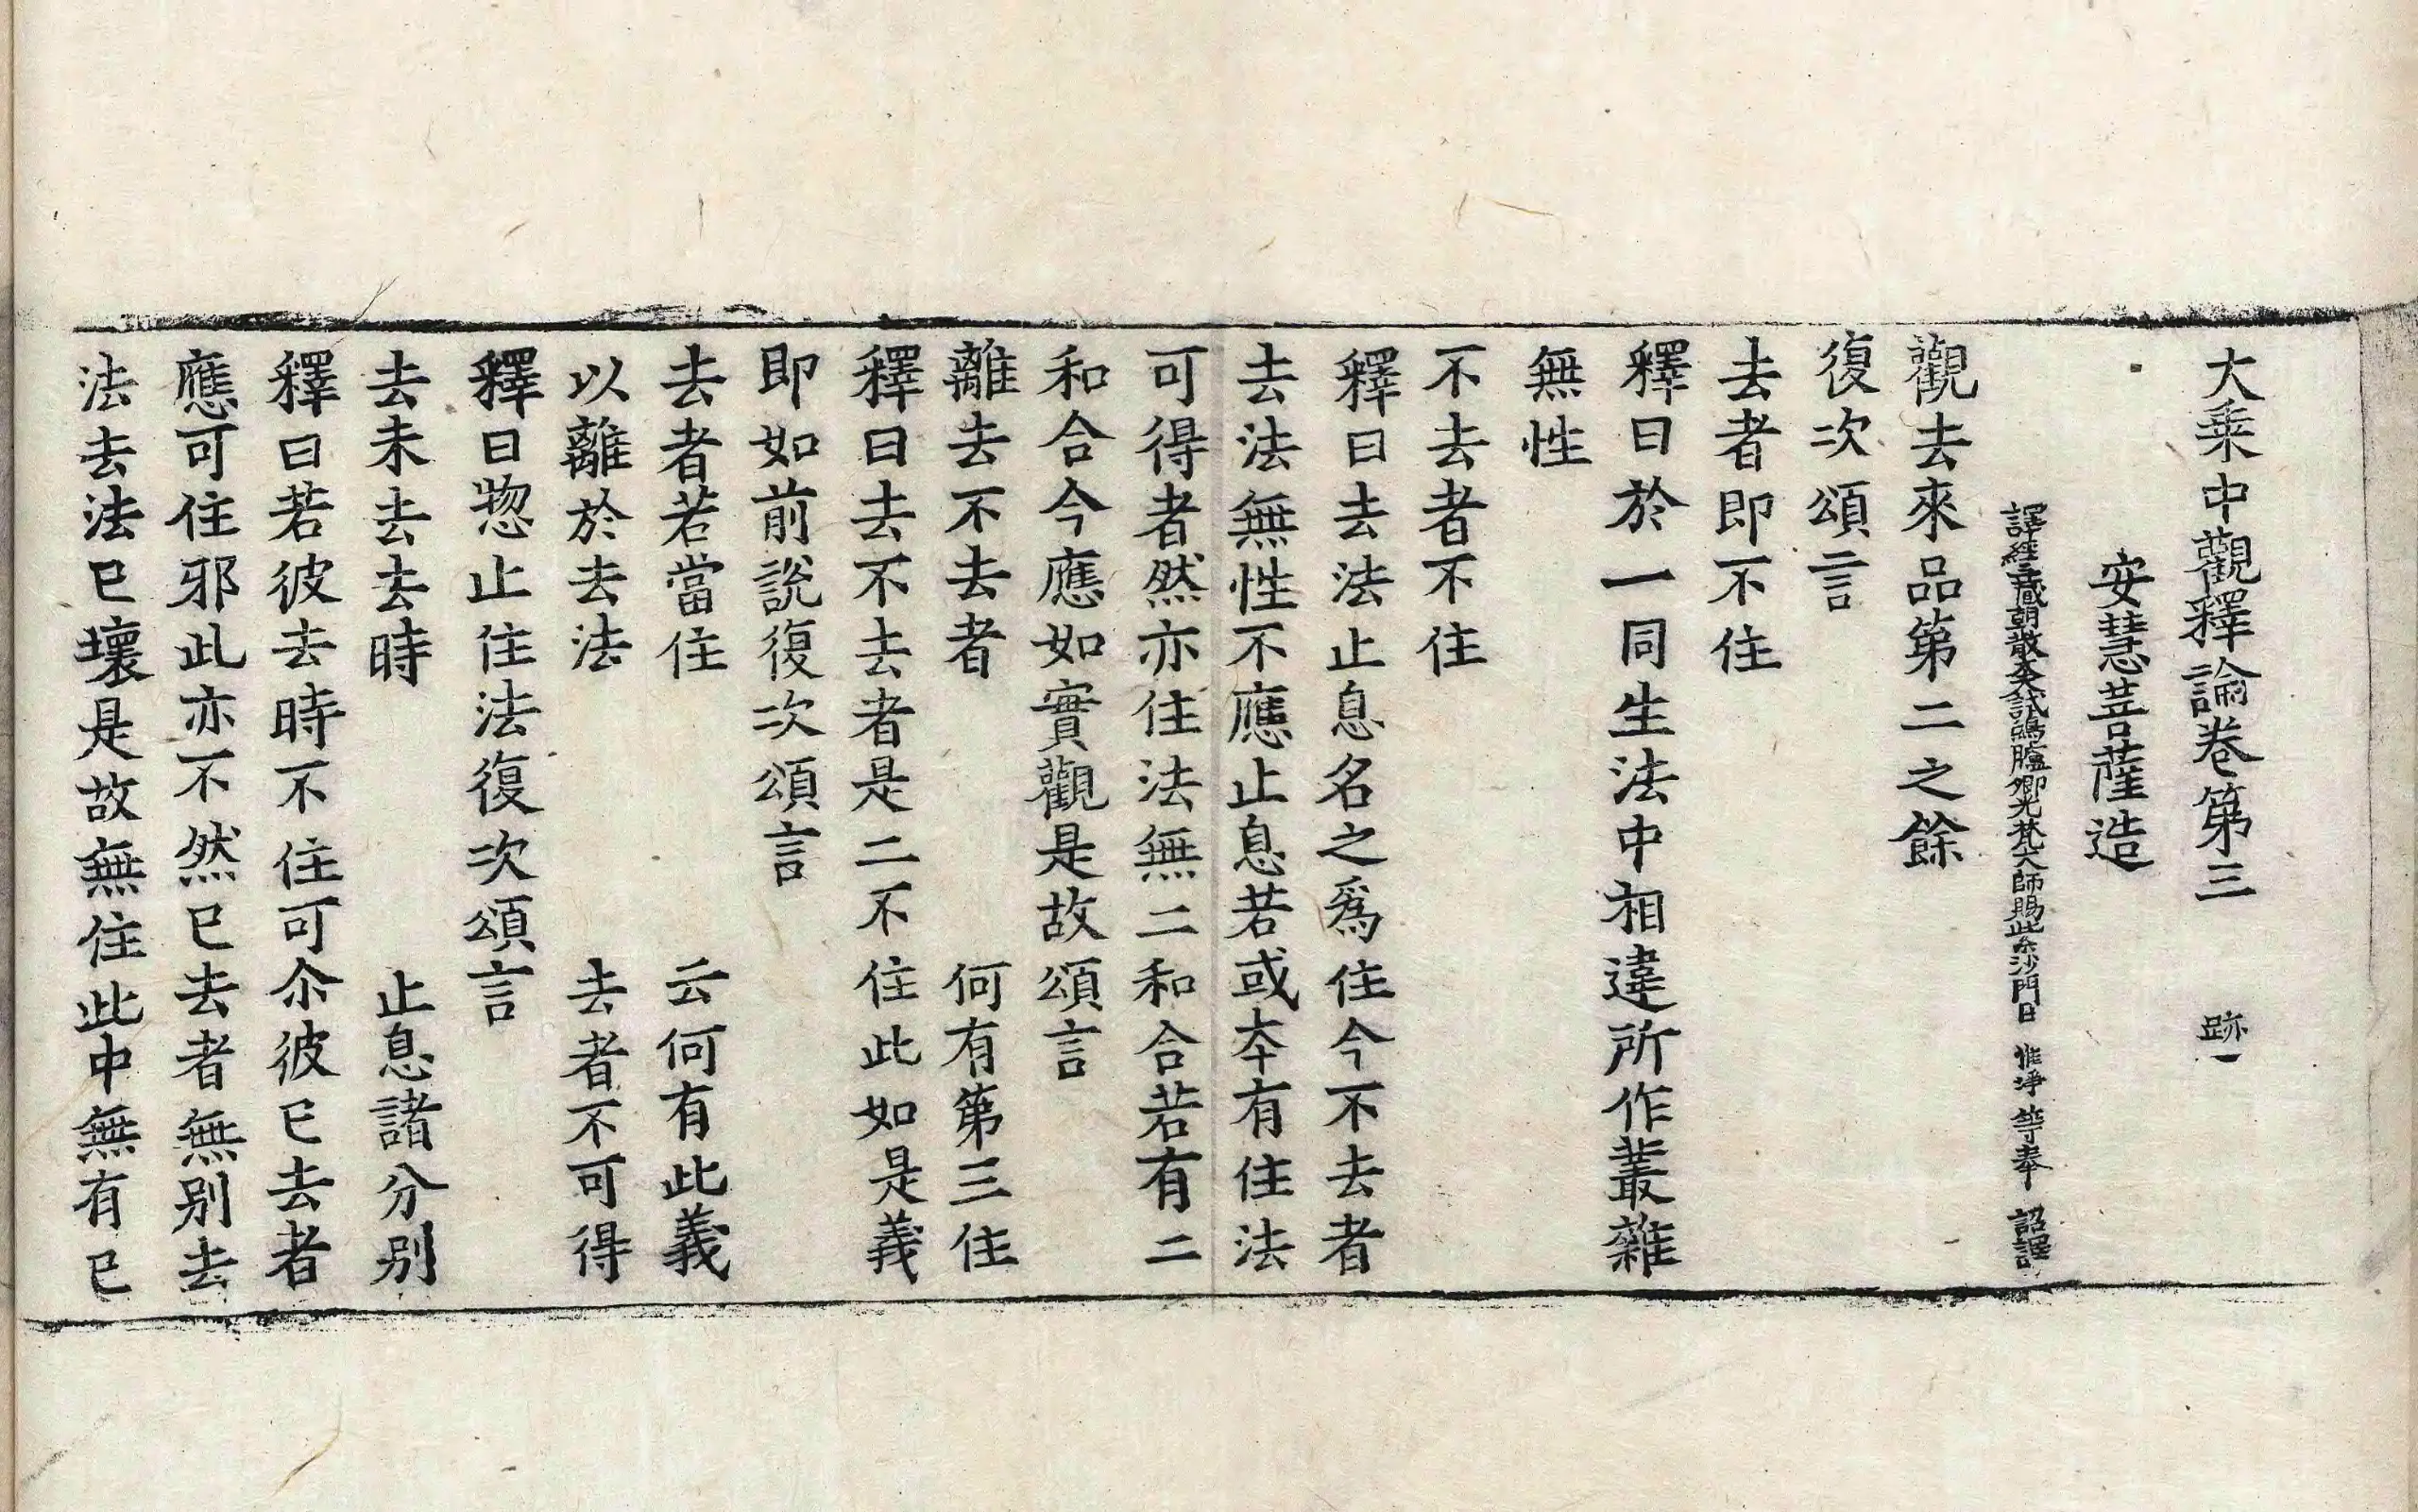 大乗中觀釋論卷第三　跡一
安慧菩薩造
譯經三藏朝散大夫試鴻臚卿光梵大師賜紫沙門臣惟淨等奉　詔譯
觀去來品第二之餘
復次頌言
去者即不住
釋曰於一同生法中相違所作叢雜
無性
不去者不住
釋曰去法止息名之爲住今不去者
去法無性不應止息若或夲有住法
可得者然亦住法無二和合若有二
和合今應如實觀是故頌言
離去不去者　何有第三住
釋曰去不去者是二不住此如是義
即如前說復次頌言
去者若當住　云何有此義
以離於去法　去者不可得
釋曰惣止住法復次頌言
去未去去時　止息諸分别
釋曰若彼去時不住可尒彼已去者
應可住邪此亦不然已去者無别去
法去法已壞是故無住此中無有已